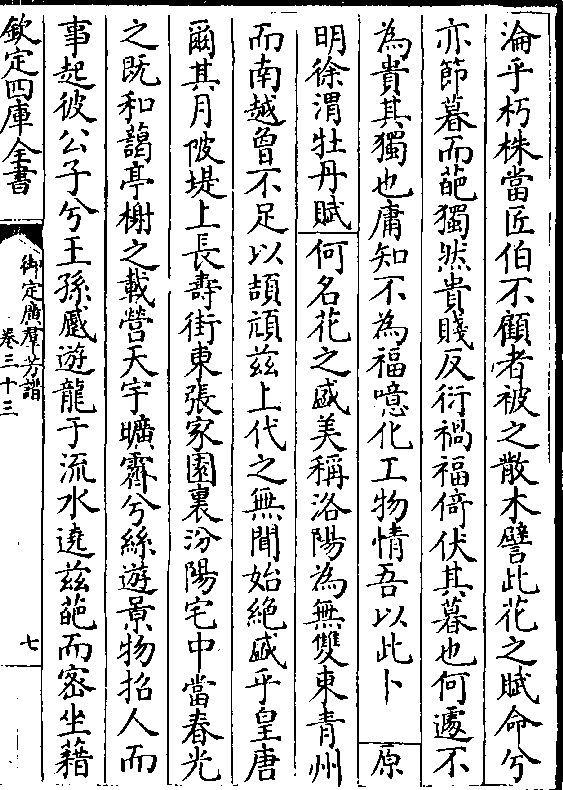 淪乎朽株當匠伯不顧者被之散木譬此花之賦命兮
亦節暮而葩獨然貴賤反衍禍福倚伏其暮也何遽不
為貴其獨也庸知不為福噫化工物情吾以此卜 原
明徐渭牡丹賦 何名花之盛美稱洛陽為無雙東青州
而南越曾不足以頡頏茲上代之無聞始絶盛乎皇唐
爾其月陂堤上長壽街東張家園裏汾陽宅中當春光
之既和藹亭榭之載營天宇曠霽兮絲遊景物招人而
事起彼公子兮王孫蹙遊龍于流水遶茲葩而密坐藉
欽定四庫全書
御定廣羣芳譜
卷三十三
七